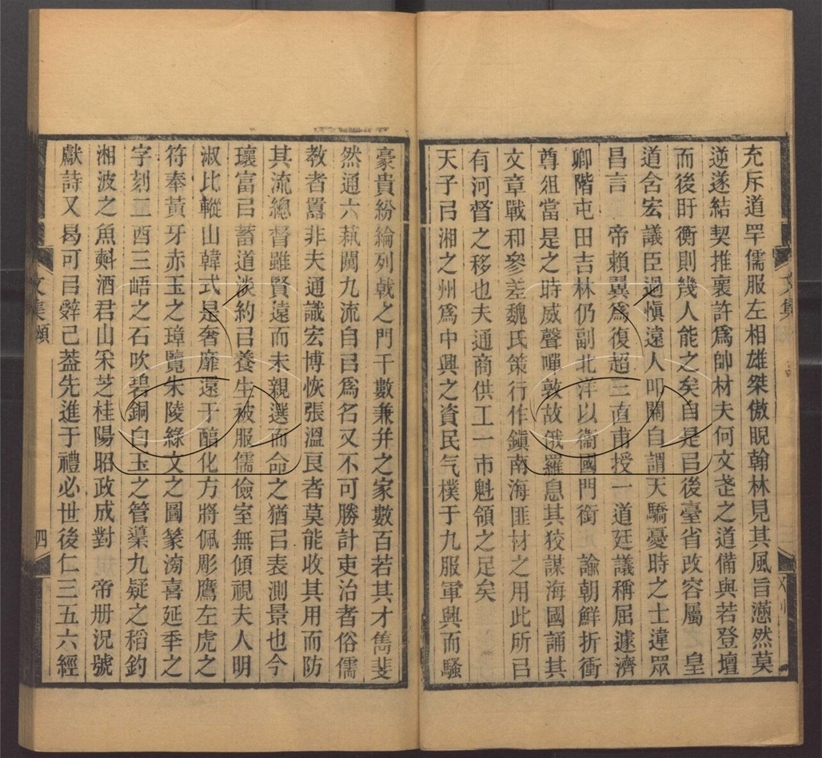 充斥道罕儒服左相雄桀傲睨翰林見其風旨懣然莫
逆遂結契推褱許爲帥材夫何文莣之道備與若登壇
而後盱衡則幾人能之矣自是㠯後臺省改容屬　皇
道含宏議臣過愼遠人叩關自謂天驕憂時之士違眾
昌言　帝賴異爲復超三直甫授一道廷議稱屈遽濟
卿階屯田吉林仍副北洋以衞國門銜　諭朝鮮折衝
尊俎當是之時威聲㘊敦故俄羅息其狡謀海國誦其
文章戰和參差魏氏策行作鎭南海匪材之用此所㠯
有河督之移也夫通商供工一市魁領之足矣
天子㠯湘之州爲中興之資民气樸于九服軍興而騷
文集
豪貴紛綸列戟之門千數兼幷之家數百若其才雋斐
然通六蓺闚九流自㠯爲名又不可勝計吏治者俗儒
敎者嚚非夫通識宏博恢張溫良者莫能收其用而防
其流總督雖賢遠而未親選而命之猶㠯表測景也今
瓌富㠯蓄道淡約㠯養生被服儒儉室無傾視夫人明
淑比轍山韓式是奢靡遠于醕化方將佩彫鷹左虎之
符奉黃牙赤玉之璋覽朱陵綠文之圖篆洀喜延季之
字刻二酉三峿之石吹碧銅白玉之管㯫九疑之稻釣
湘波之魚㪺酒君山采芝桂陽昭政成對　帝冊況號
獻詩又曷可㠯辤己葢先進于禮必世後仁三五六經
文集類
四